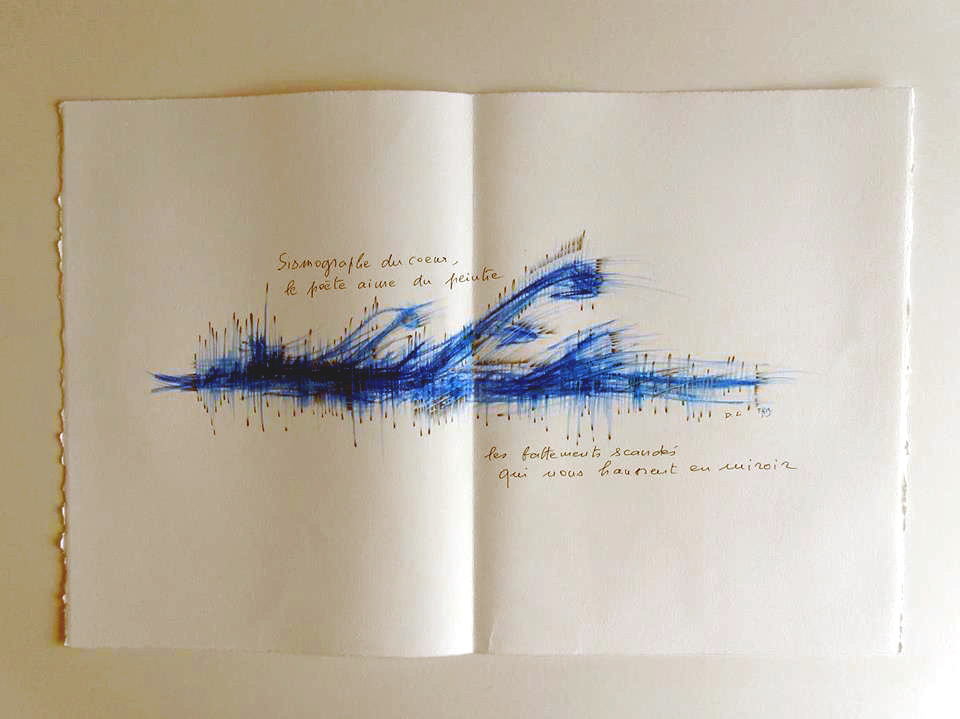 Sismographe du coeur,
le poète aime du peintre
les battements scandés
qui nous haussent en miroir
D. L.